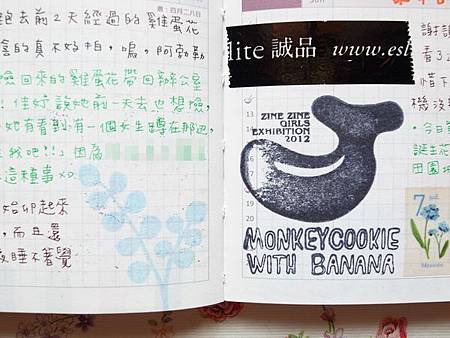 農:四月二八日
跑去前2天經過的雞蛋花
的真不好拍,嗚,阿勃勒
撿回來的雞蛋花帶回辦公室
!佳妤說她前一天去也想撿,
她有看到有一個女生蹲在那邊,
是我吧!!」因為
這種事XD
始卯起來
,而且還
夜睡不著覺
lite 誠品 www.esl
ZINE ZINE
GIRLS
EXHIBITION
2012
MONKEYCOOKIE
WITH BANANA
謝謝
看3
惜下
機沒
今日
誕生花
田園
7